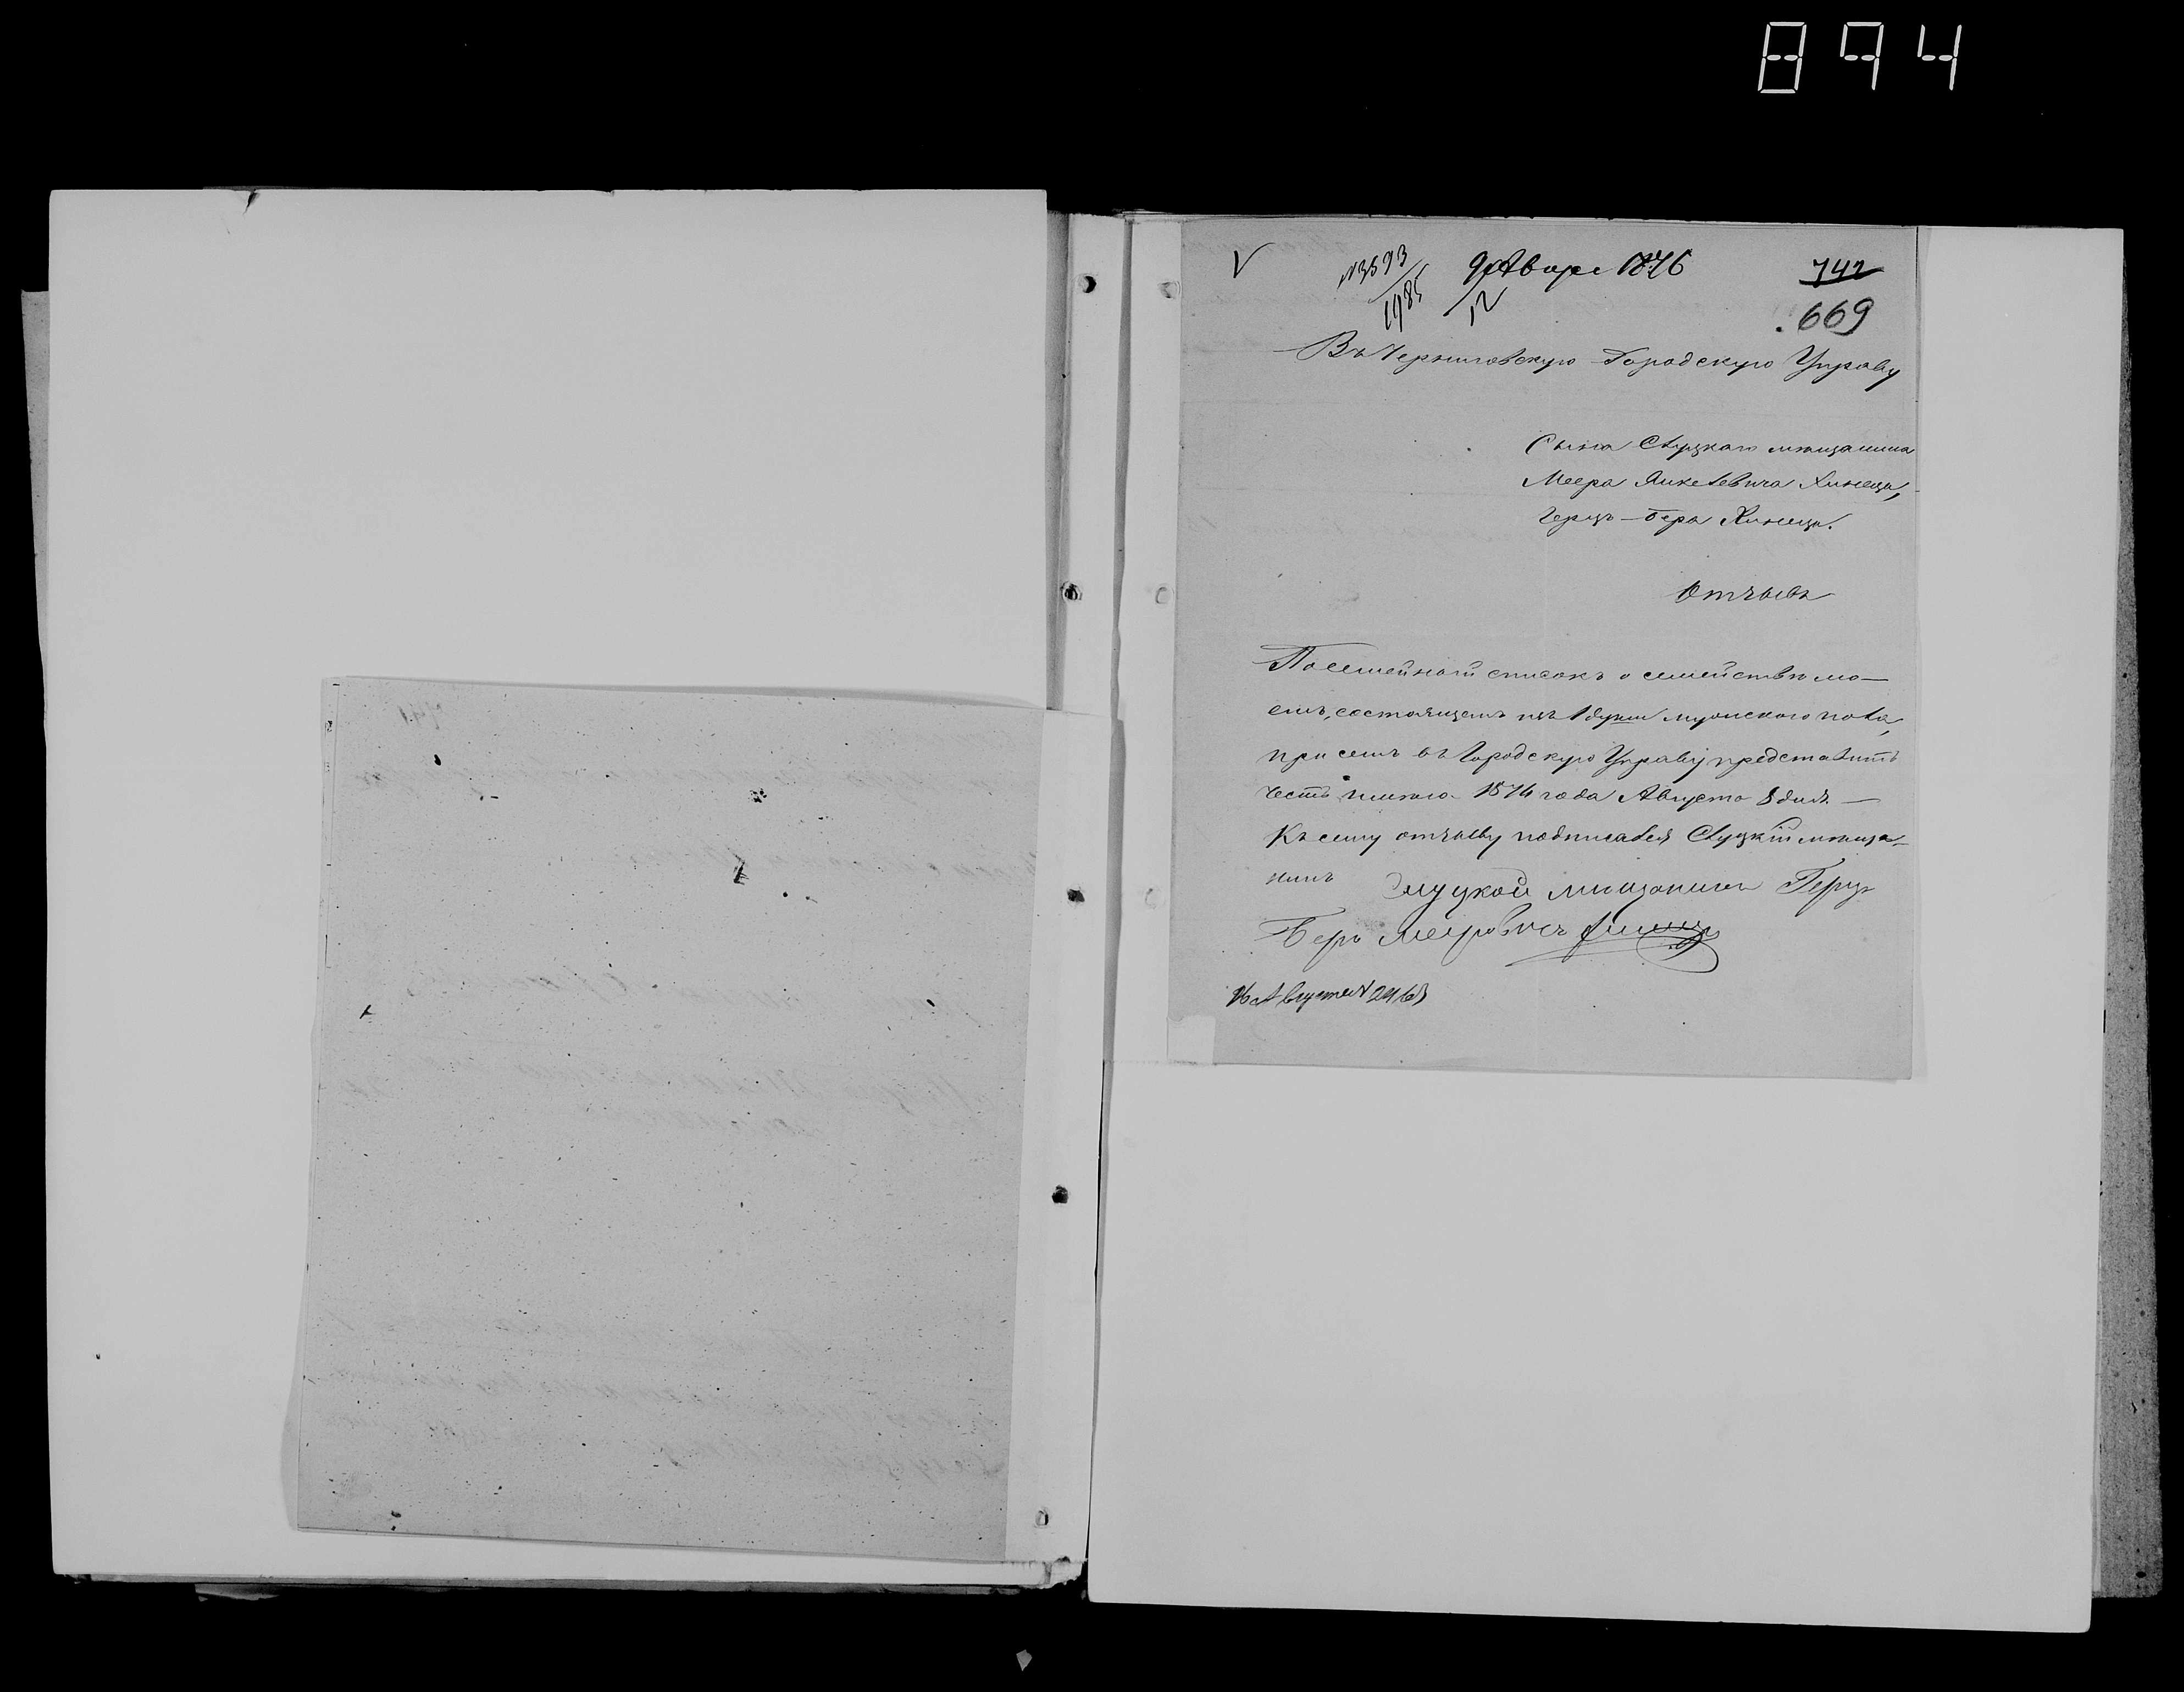 894
V
№3593
1985
9 Января 1876
12
742
669
Въ Черниговскую Городскую Управу
Сына Слуцкаго мѣщанина
Меера Янкелевича Хинеца,
Герцъ-Бера Хинеца.
Отзывъ
Посемейный списокъ о семействѣ мо-
емъ, состоящемъ изъ 1 души мужского пола,
при семъ въ Городскую Управу представить
честь имѣю 1874 года Августа 8 дня —
Къ сему отзыву подписался Слуцкій мѣща-
нинъ Слуцкой мищанинъ Герцъ
Беръ Меировичъ
Августа № 2463